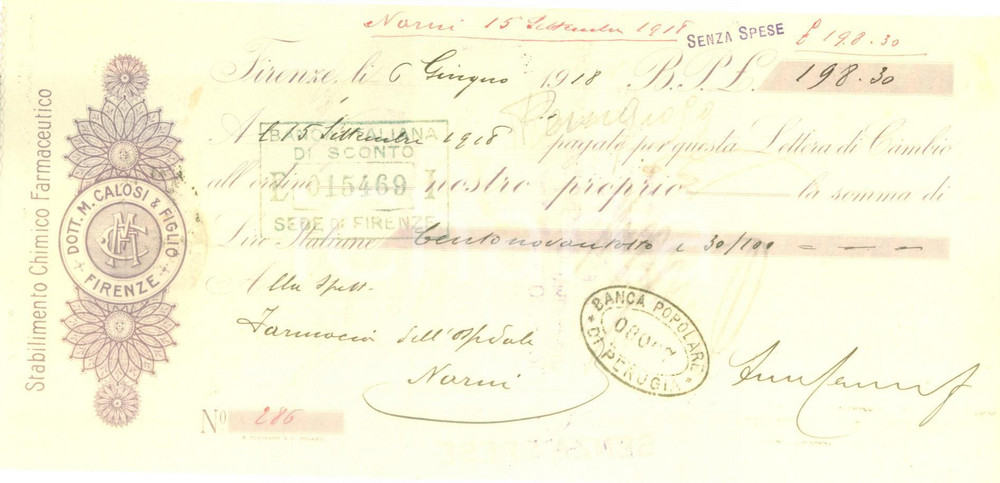 Narni 15 Settembre 1918 SENZA SPESE £ 198.30
Firenze, li 6 Giugno 1918 B.P.L. 198.30
A l 15 Settembre 1918 pagate per questa Lettera di Cambio
all'ordine nostro proprio la somma di
Lire Italiane Centonovantotto e 30/100
Alla Spett.
Farmacia dell'Ospedale
Narni
No 286
Stabilimento Chimico Farmaceutico
DOTT. M. CALOSI & FIGLIO
FIRENZE
BANCA ITALIANA
DI SCONTO
E 015469 I
SEDE DI FIRENZE
BANCA POPOLARE
DI PERUGIA
SENZA SPESE